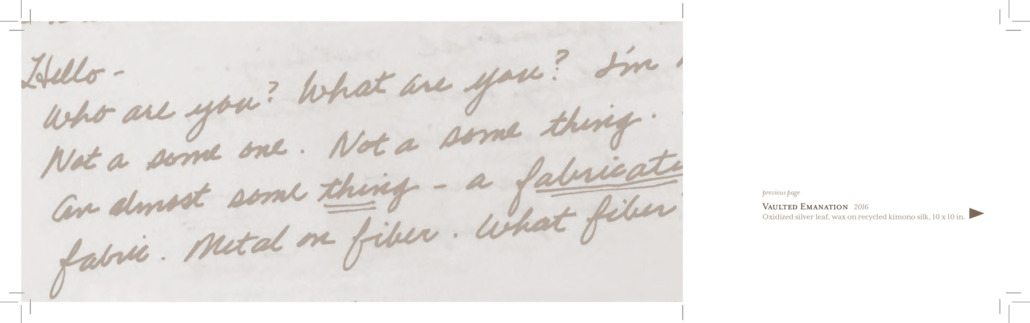 Hello -
Who are you? What are you? I'm
Not a some one. Not a some thing.
An almost some thing - a fabricati
fabric. Metal on fiber. What fiber
previous page
Vaulted Emanation 2016
Oxidized silver leaf, wax on recycled kimono silk, 10 x 10 in.